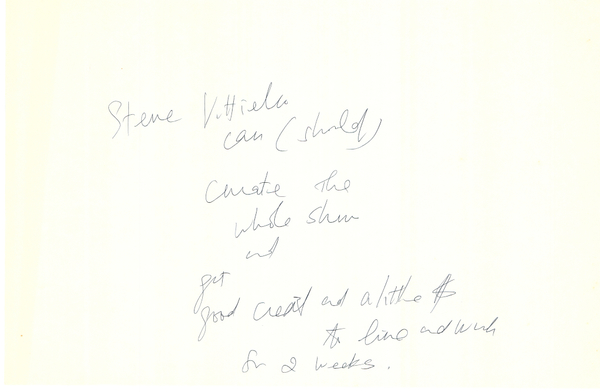 Steve Vittiello
can (should)
curate the
whole show
and
get
good credit and a little $
to live and work
for 2 weeks.